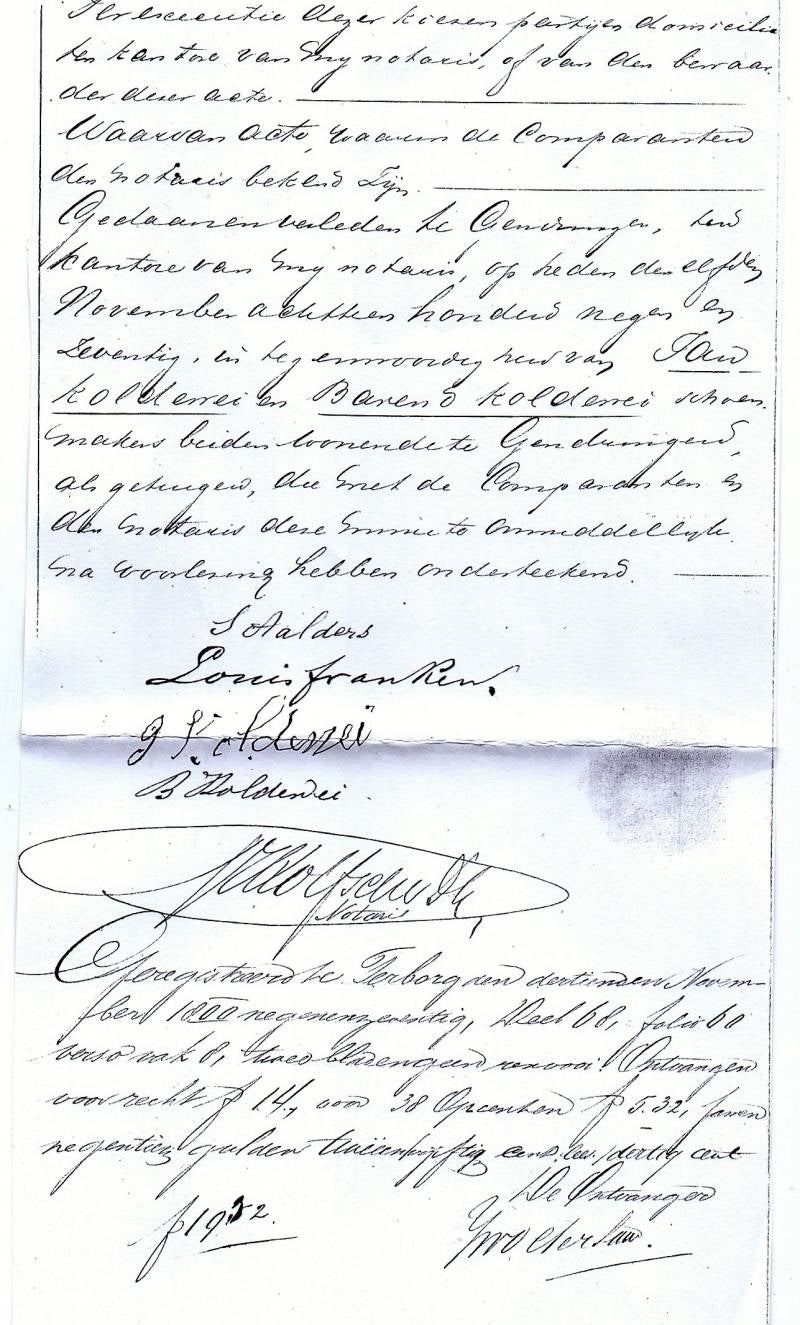 Ter executie dezer kiesen partijen domicilie
ten kantore van my notaris, of van den bewaar-
der dezer acte.
Waarvan acte, waarin de Comparanten
den notaris bekend zijn.
Gedaan en verleden te Gendringen, ten
kantore van my notaris, op heden den elfden
November achttien honderd negen en
zeventig, in tegenwoordigheid van Jan
Kolderrei en Barend Kolderrei schoen-
makers beiden wonende te Gendringen,
als getuigen, die met de Comparanten en
den notaris deze minute onmiddellyk
na voorlezing hebben onderteekend.
S Aalders
Louis franken.
g Koldewei
B Koldewei.
Notaris
Geregistreerd te Terborg den dertienden Novem-
ber 1800 negenenzeventig, Deel 68, folio 60
verso vak 8, twee bladen geen renvooi. Ontvangen
voor recht f 14., voor 38 Opcenten f 5.32, samen
negentien gulden dertig cent
De Ontvanger
f 19.32.